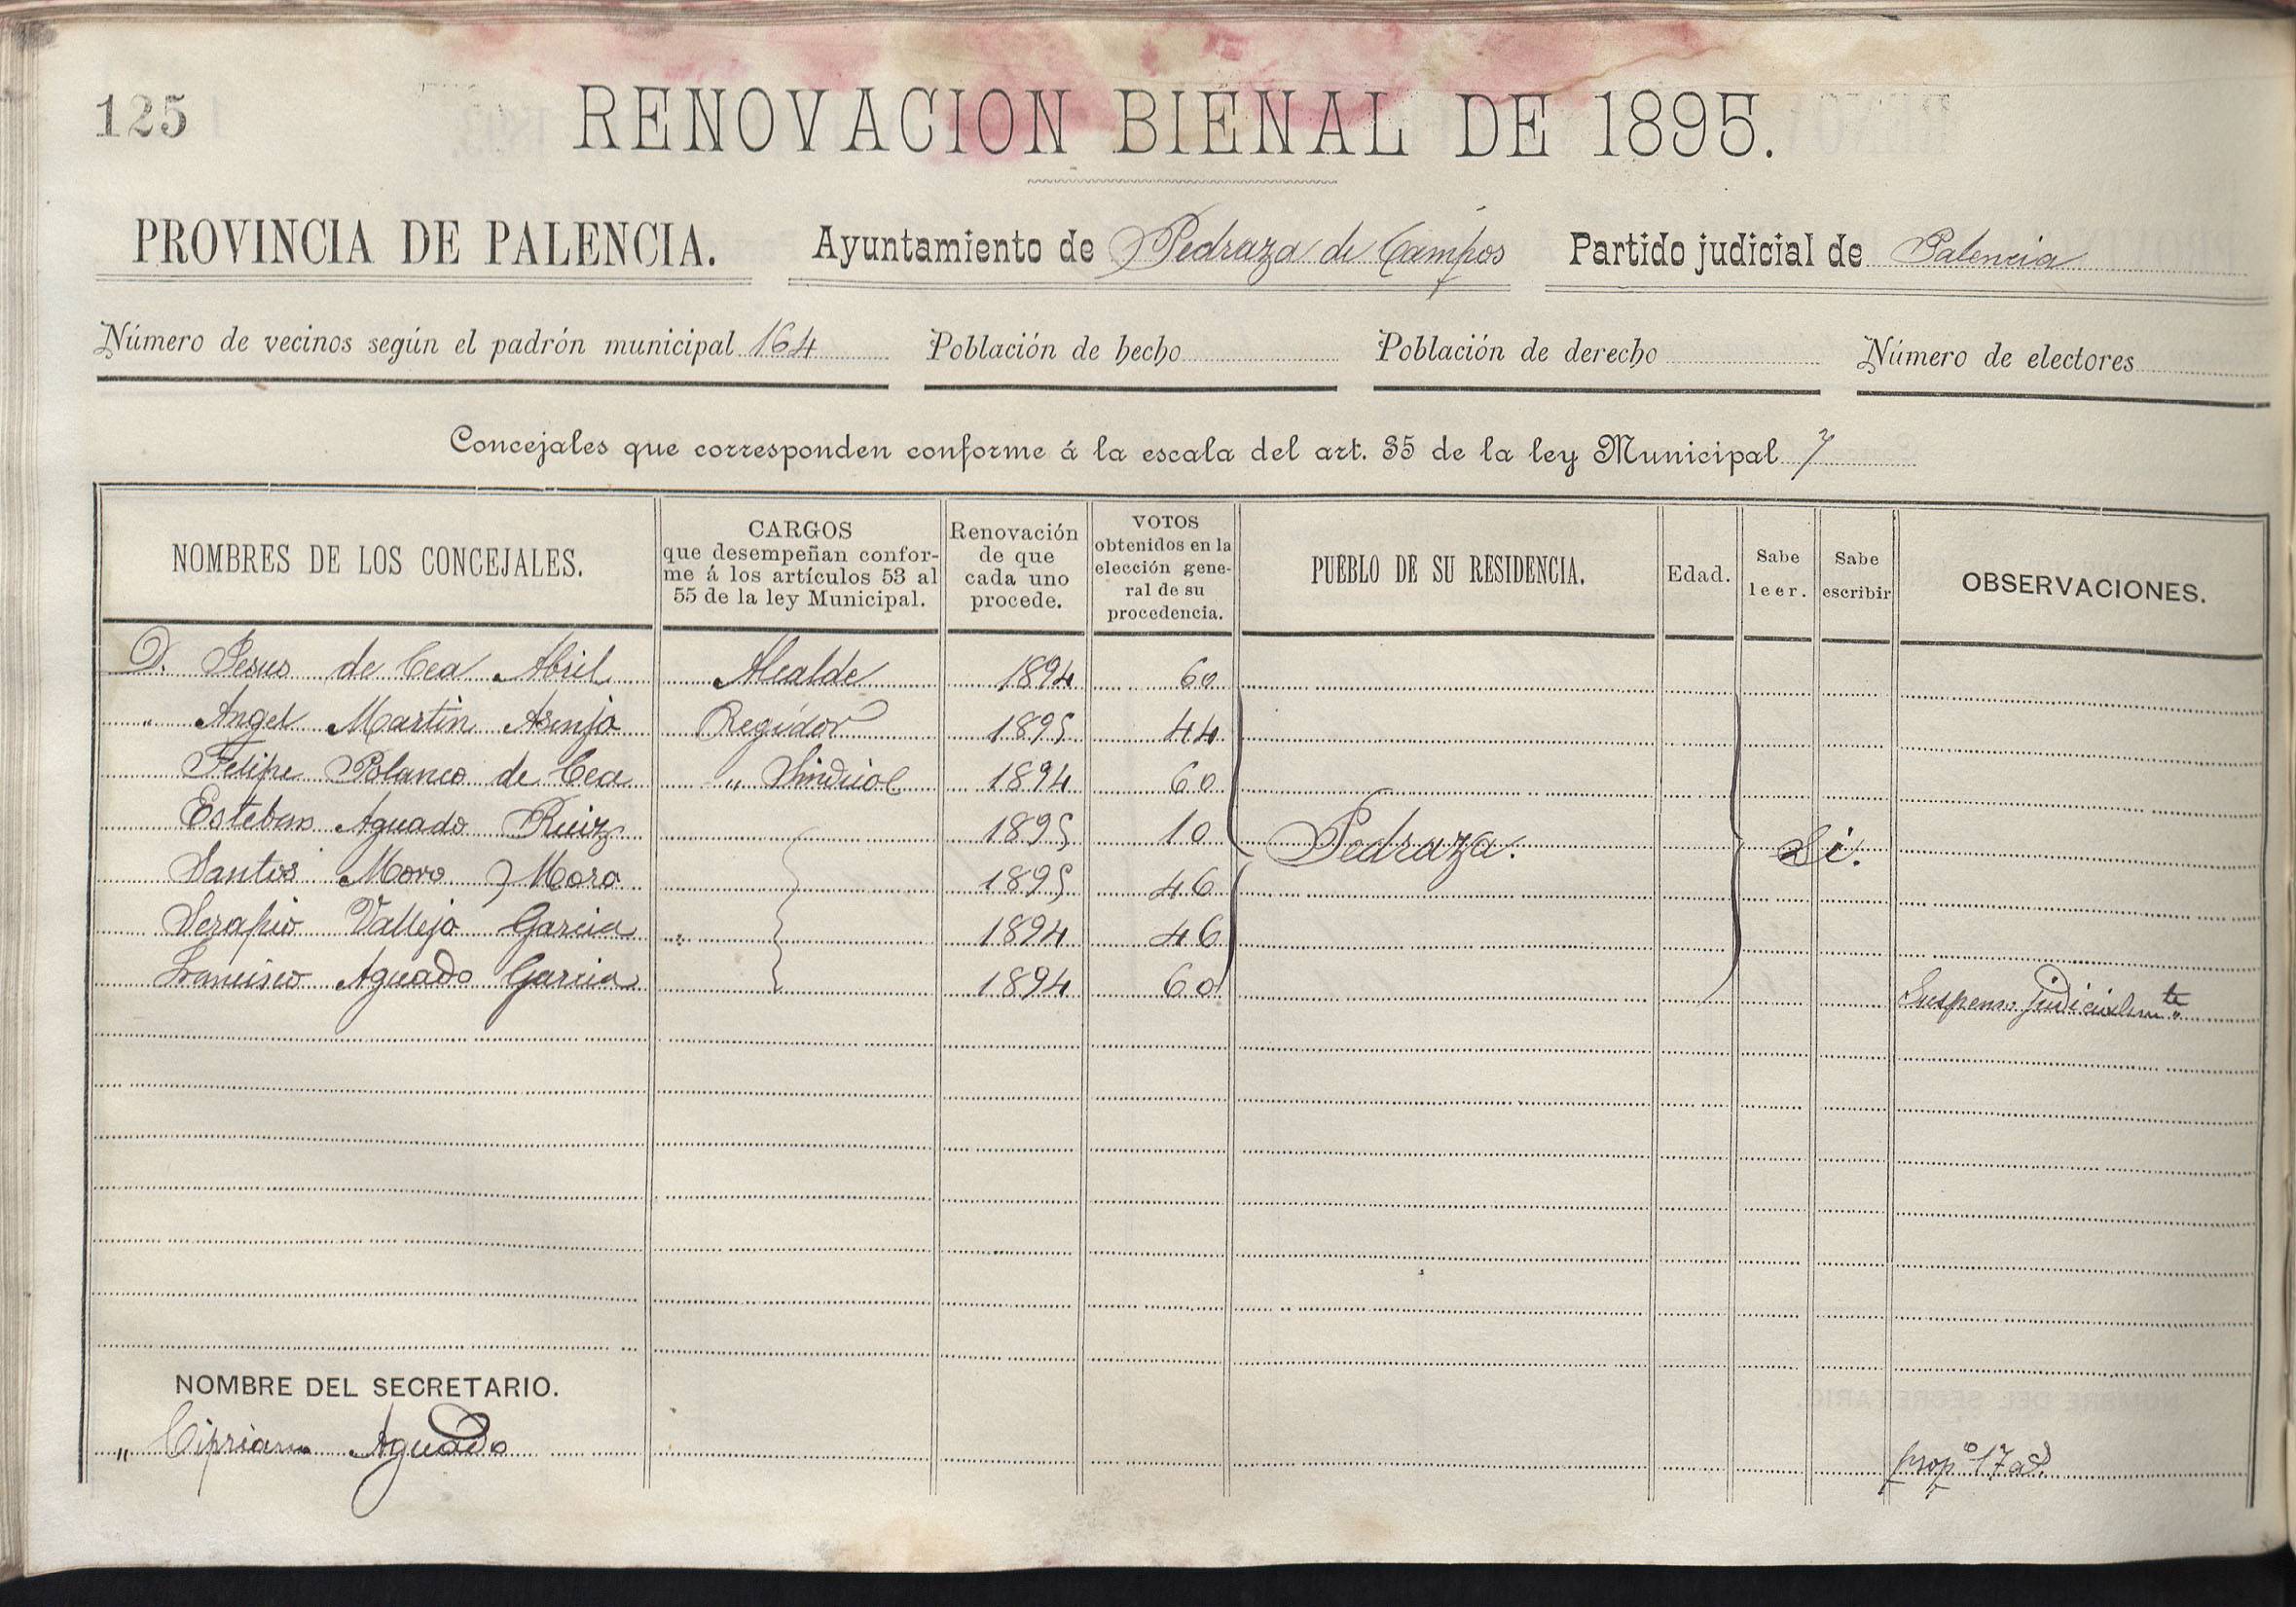 125
RENOVACION BIENAL DE 1895.
PROVINCIA DE PALENCIA. Ayuntamiento de Pedraza de Campos Partido judicial de Palencia
Número de vecinos según el padrón municipal 164 Población de hecho Población de derecho Número de electores
Concejales que corresponden conforme á la escala del art. 35 de la ley Municipal 7
NOMBRES DE LOS CONCEJALES.
CARGOS
que desempeñan confor-
me á los artículos 53 al
55 de la ley Municipal.
Renovación
de que
cada uno
procede.
VOTOS
obtenidos en la
elección gene-
ral de su
procedencia.
PUEBLO DE SU RESIDENCIA.
Edad.
Sabe
leer.
Sabe
escribir
OBSERVACIONES.
D. Jesus de Cea Abril Alcalde 1894 60
" Angel Martin Asenjo Regidor 1895 44
Felipe Blanco de Cea " Sindico 1894 60
Esteban Aguado Ruiz 1895 10
Pedraza. Si.
Santos Moro Moro 1895 46
Serapio Vallejo Garcia 1894 46
Francisco Aguado Garcia 1894 60 Suspenso judicialmte
NOMBRE DEL SECRETARIO.
" Ciprian Aguado